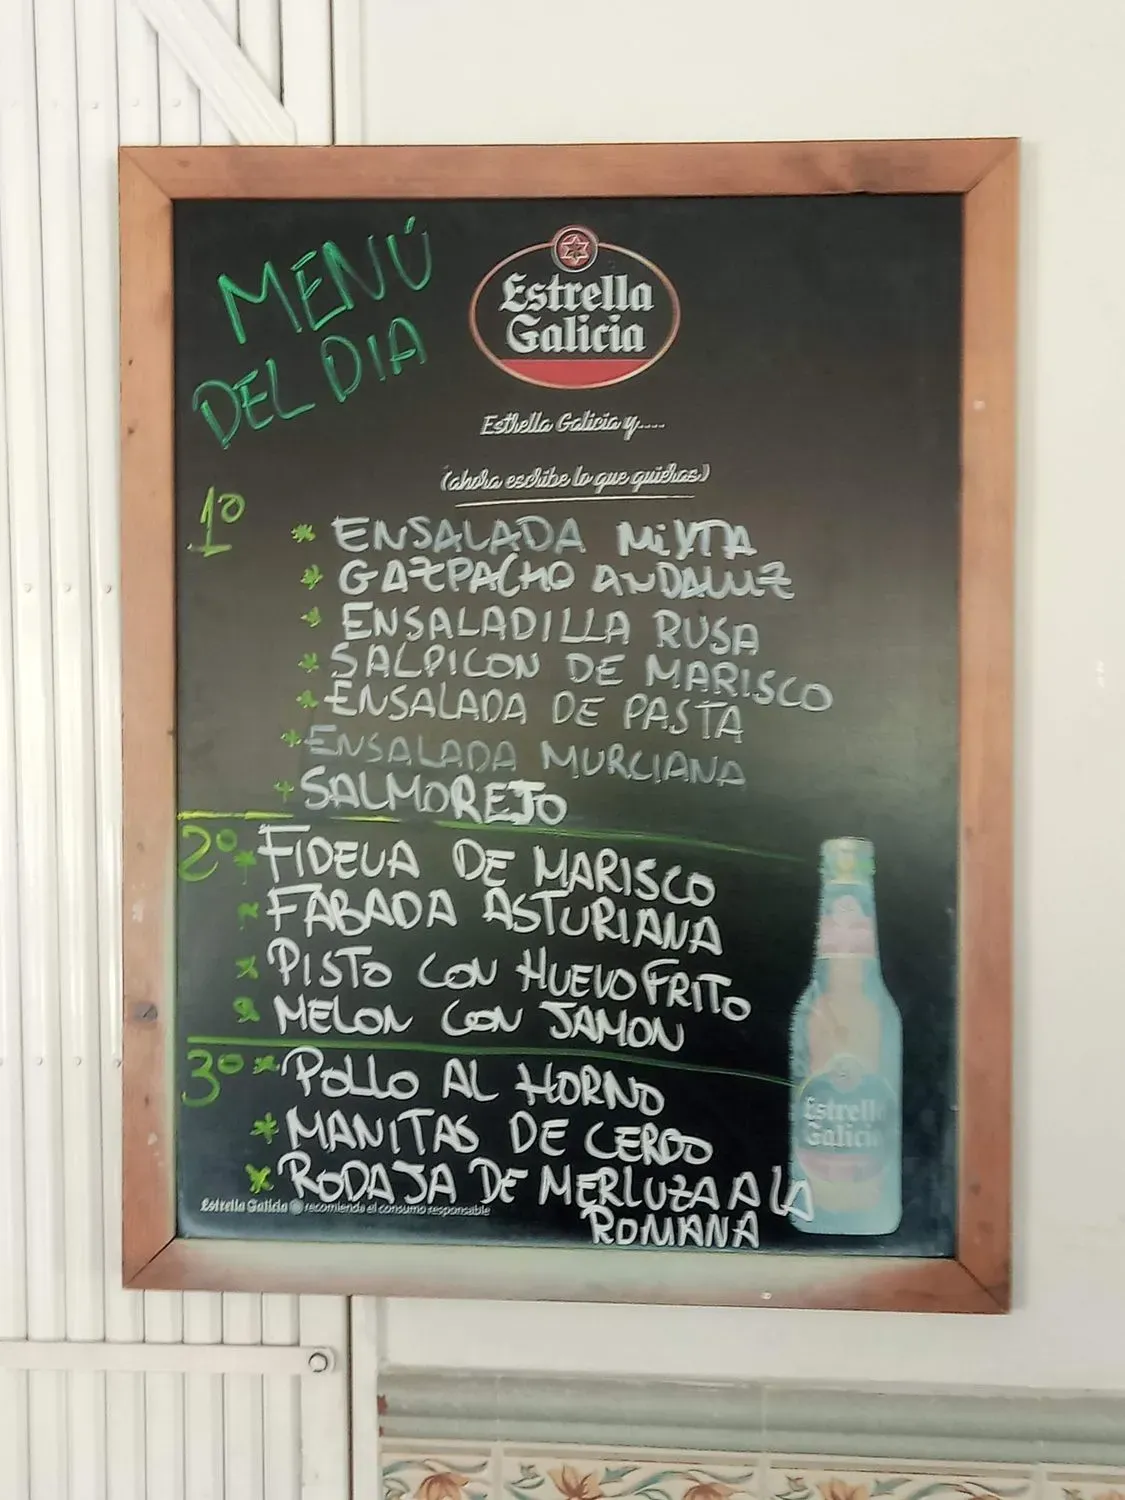 MENÚ
DEL DIA
Estrella
Galicia
Estrella Galicia y....
(ahora escribe lo que quieras)
1º
* ENSALADA MIXTA
* GAZPACHO ANDALUZ
* ENSALADILLA RUSA
* SALPICON DE MARISCO
* ENSALADA DE PASTA
* ENSALADA MURCIANA
* SALMOREJO
2º * FIDEUA DE MARISCO
* FABADA ASTURIANA
* PISTO CON HUEVO FRITO
* MELON CON JAMON
3º * POLLO AL HORNO
* MANITAS DE CERDO
* RODAJA DE MERLUZA A LA
ROMANA
Estrella Galicia recomienda el consumo responsable
Estrella
Galicia